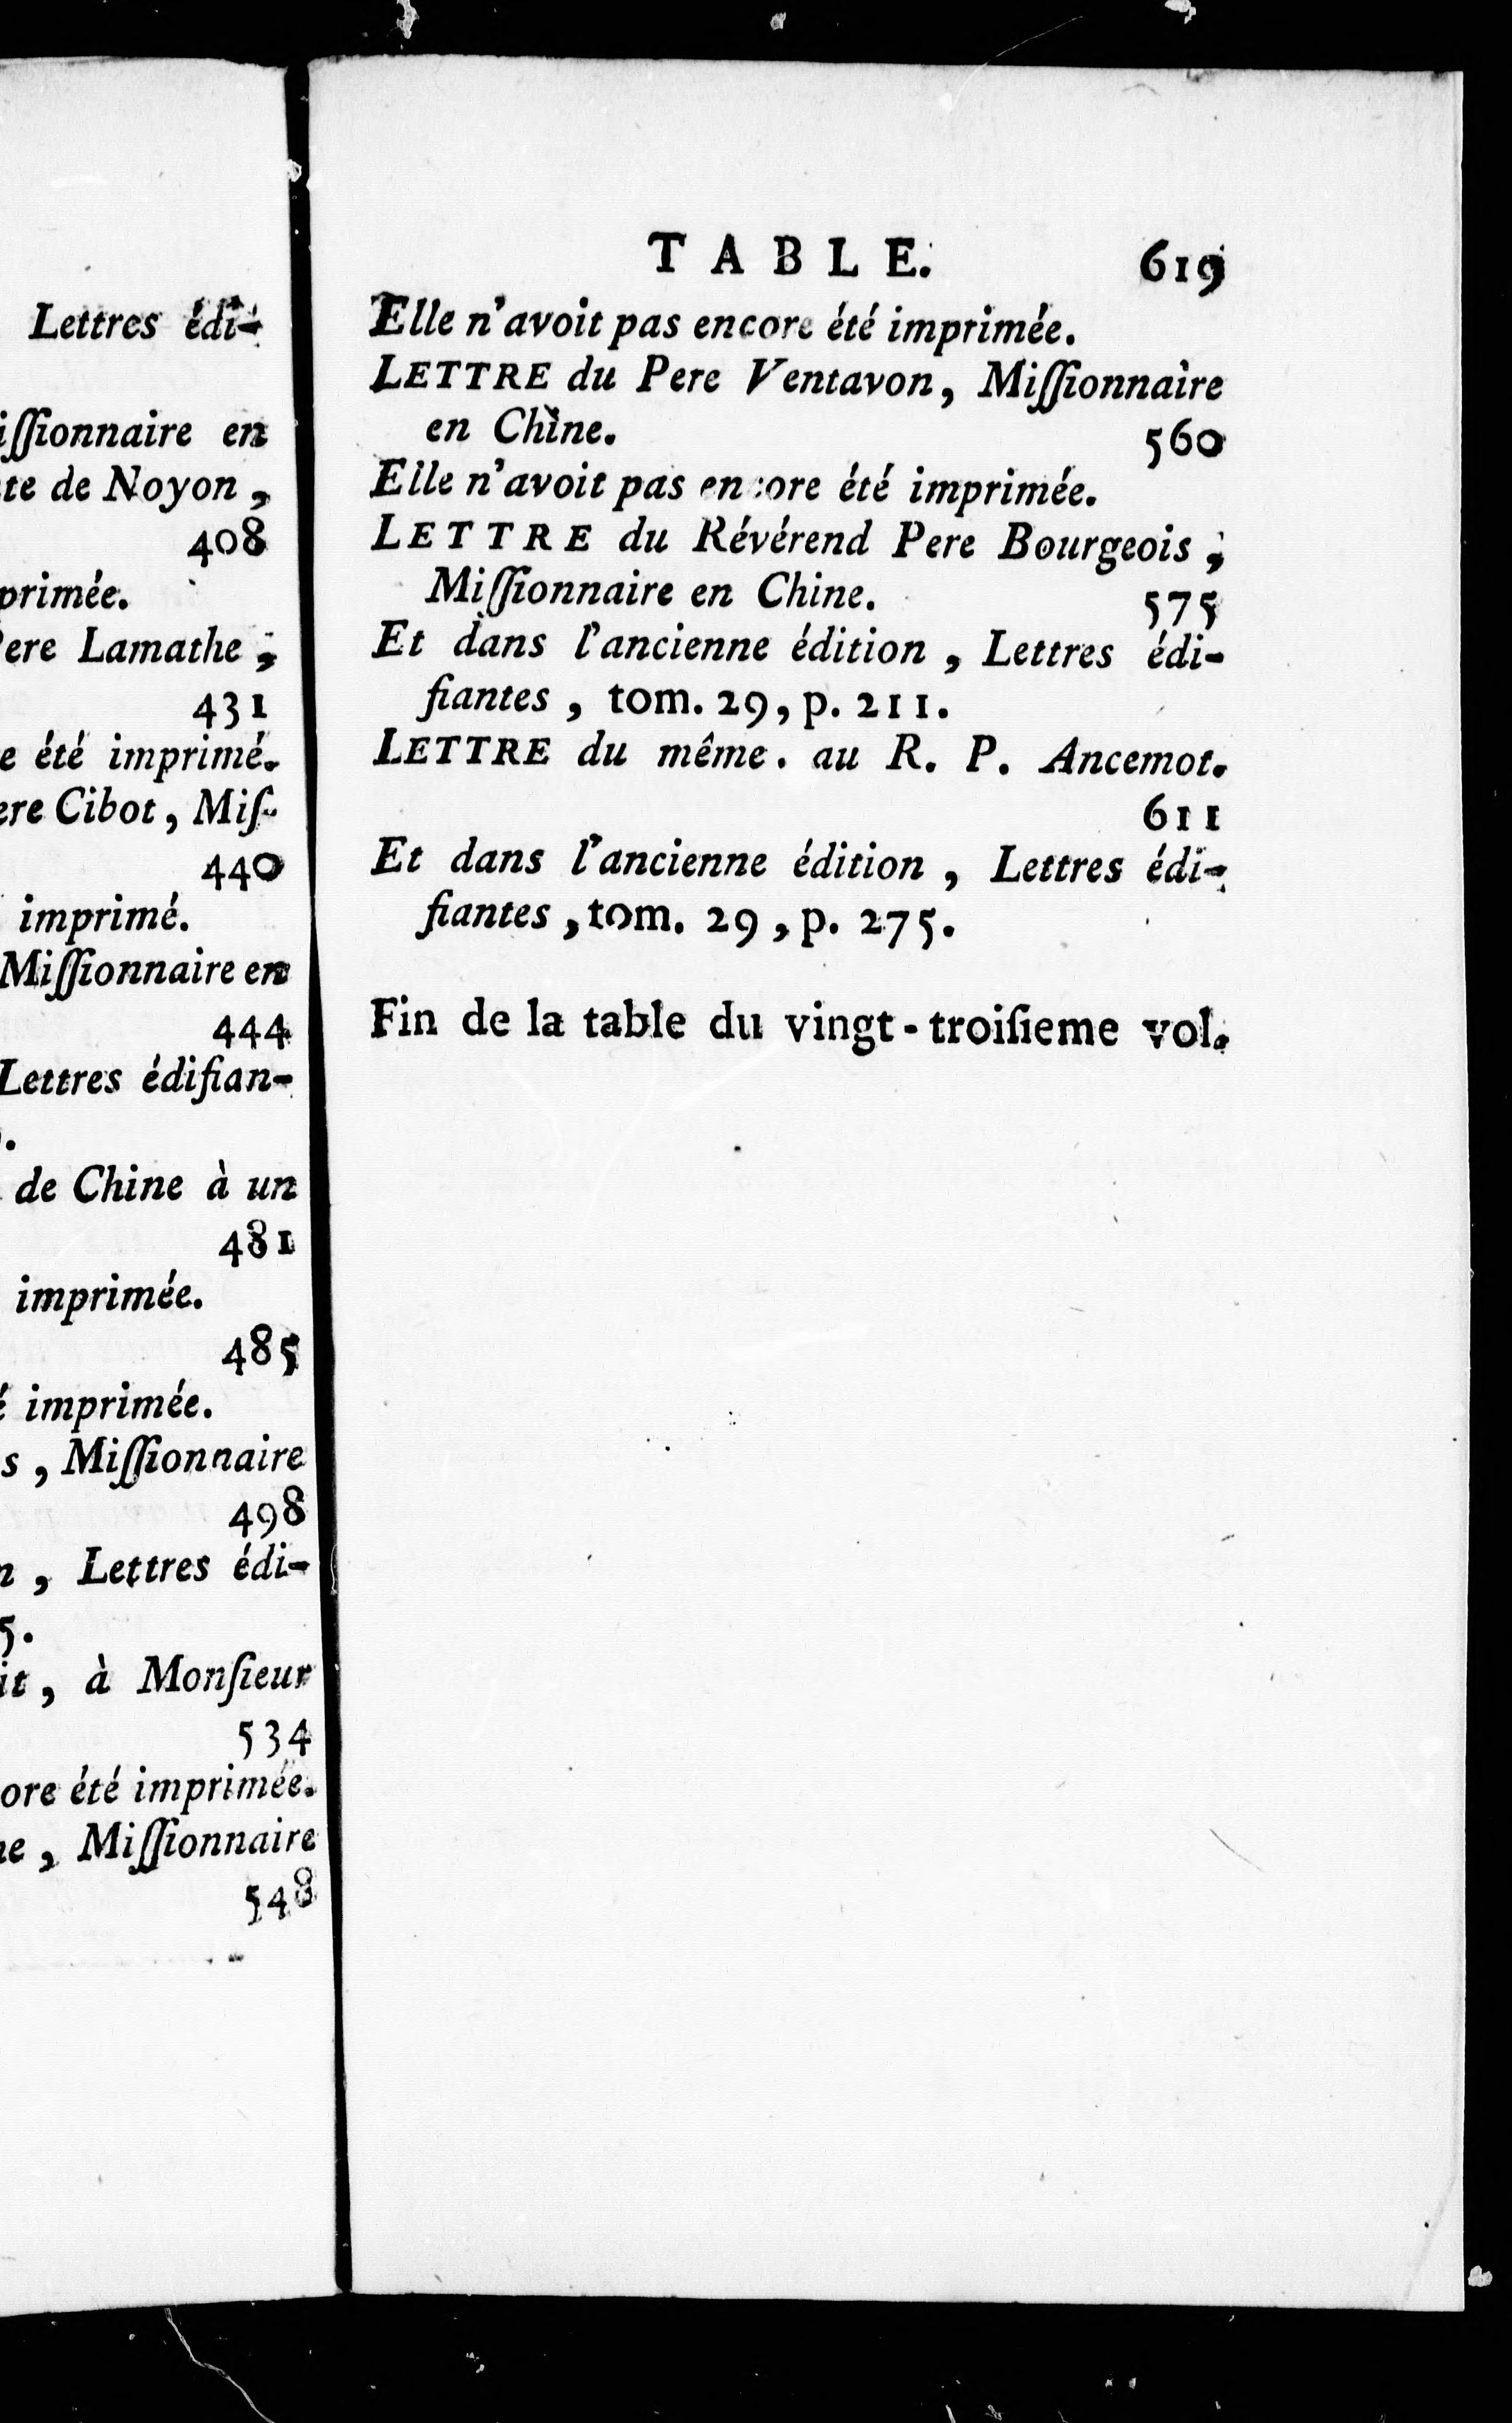 Lettres édi-
iſſionnaire en
te de Noyon,
408
primée.
Pere Lamathe,
431
e été imprimé.
ere Cibot, Miſ-
440
imprimé.
Miſſionnaire en
444
Lettres édifian-
de Chine à un
481
imprimée.
485
é imprimée.
s, Miſſionnaire
498
n, Lettres édi-
5.
it, à Monſieur
534
ore été imprimée.
ne, Miſſionnaire
548
TABLE. 619
Elle n'avoit pas encore été imprimée.
LETTRE du Pere Ventavon, Miſſionnaire
en Chine. 560
Elle n'avoit pas encore été imprimée.
LETTRE du Révérend Pere Bourgeois,
Miſſionnaire en Chine. 575
Et dans l'ancienne édition, Lettres édi-
fiantes, tom. 29, p. 211.
LETTRE du même. au R. P. Ancemot.
611
Et dans l'ancienne édition, Lettres édi-
fiantes, tom. 29, p. 275.
Fin de la table du vingt-troiſieme vol.